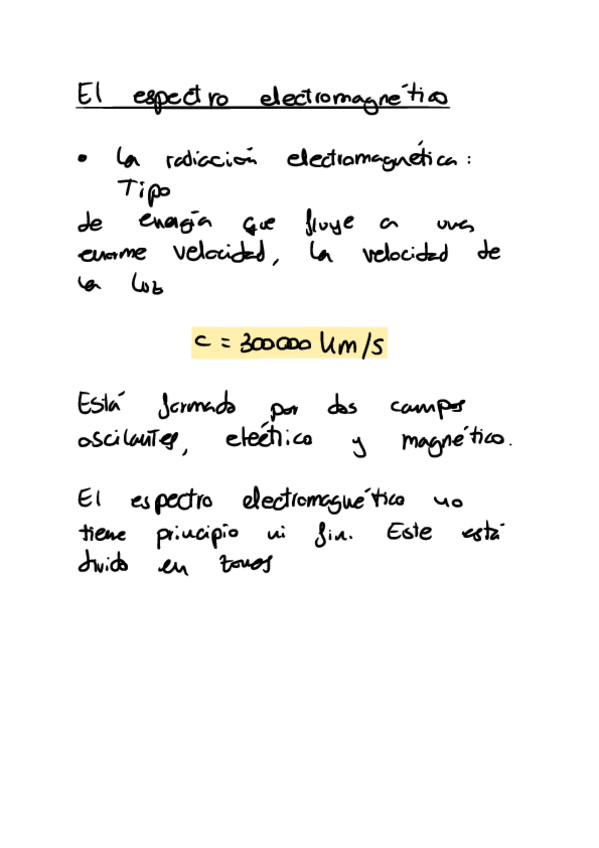 El espectro electromagnético
• La radiación electromagnética:
Tipo
de energía que fluye a una
enorme velocidad, la velocidad de
la luz
c = 300000 Km/s
Está formado por dos campos
oscilantes, eléctrico y magnético.
El espectro electromagnético no
tiene principio ni fin. Este está
divido en zonas